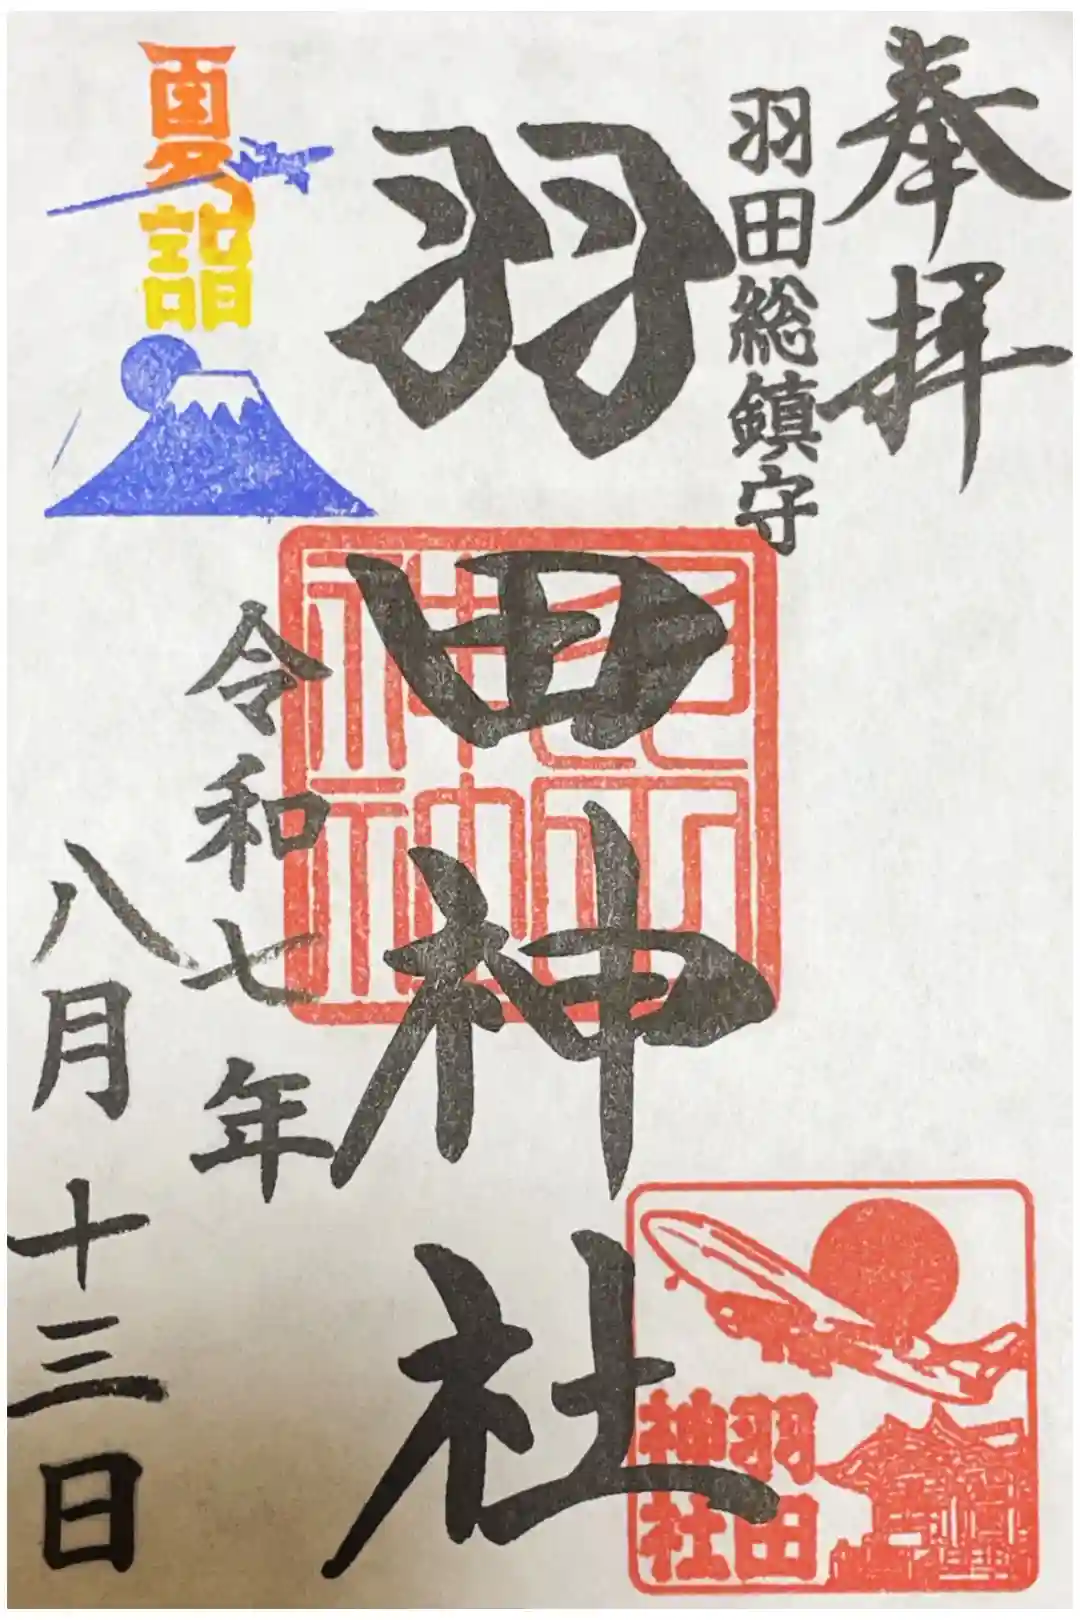 奉拝
羽田総鎮守
羽田神社
令和七年
八月十三日
夏詣
羽田
神社